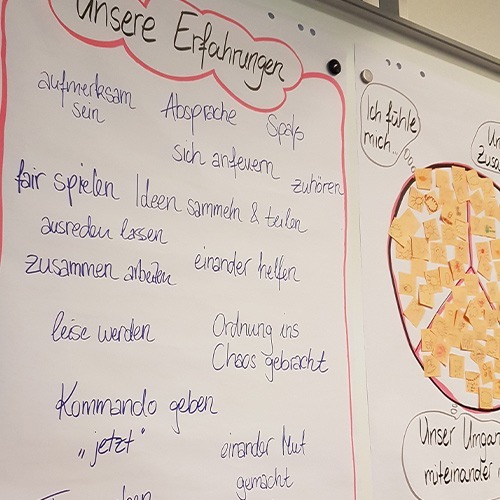 Unsere Erfahrungen
aufmerksam
sein
Absprache
Spaß
sich anfeuern
zuhören
fair spielen
Ideen sammeln & teilen
ausreden lassen
zusammen arbeiten
einander helfen
leise werden
Ordnung ins
Chaos gebracht
Kommando geben
„jetzt“
einander Mut
gemacht
Ich fühle
mich...
Unser Umgan
miteinander